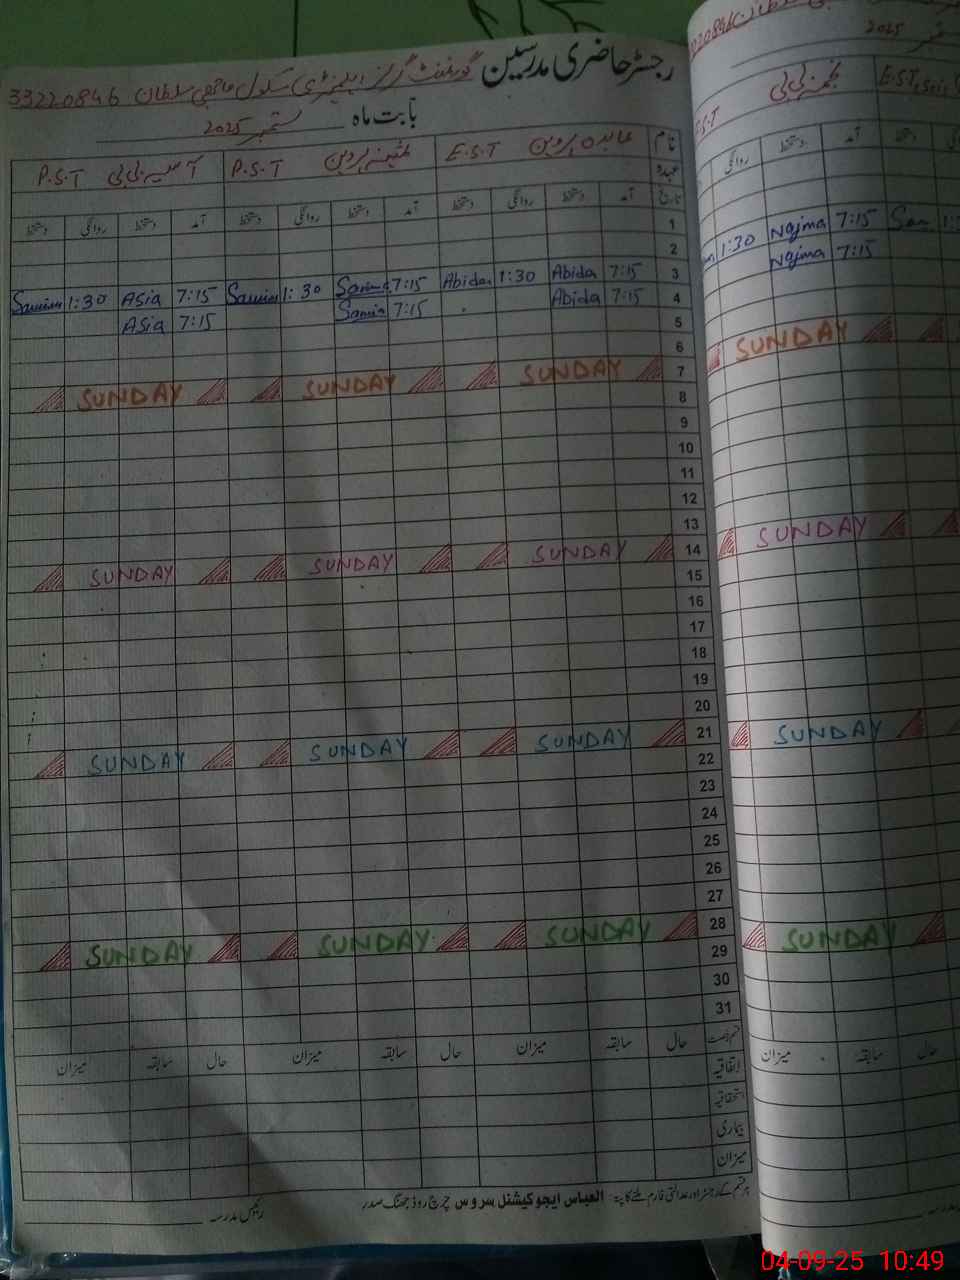 رجسٹر حاضری مدرسین گورنمنٹ گرلز ایلیمنٹری سکول سلطان 33220846
بابت ماہ ستمبر 2025
نام عابدہ پروین E.S.T ثمینہ پروین P.S.T آسیہ بی بی P.S.T
عہدہ
تاریخ آمد دستخط روانگی دستخط آمد دستخط روانگی دستخط آمد دستخط روانگی دستخط
1
2
3 7:15 Abida 1:30 Abida 7:15 Samina 1:30 7:15 Asia 1:30
4 7:15 Abida 7:15 Samina 7:15 Asia
5
6
7 SUNDAY SUNDAY SUNDAY
8
9
10
11
12
13
14 SUNDAY SUNDAY SUNDAY
15
16
17
18
19
20
21 SUNDAY SUNDAY SUNDAY
22
23
24
25
26
27
28 SUNDAY SUNDAY SUNDAY
29
30
31
قسم رخصت حال سابقہ میزان حال سابقہ میزان حال سابقہ میزان
اتفاقیہ
استحقاقیہ
بیماری
میزان
ہر قسم کے رجسٹر اور عدالتی فارم ملنے کا پتہ: العباس ایجوکیشنل سروس چرچ روڈ جھنگ صدر
رئیس مدرسہ
ستمبر 2025
نجمہ بی بی E.S.T
آمد دستخط روانگی
7:15 Najma 1:30
7:15 Najma
SUNDAY
SUNDAY
SUNDAY
SUNDAY
حال سابقہ میزان
رئیس مدرسہ
04-09-25 10:49